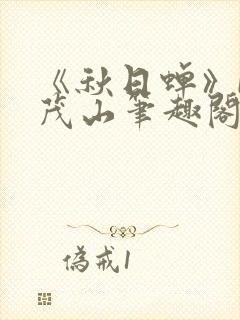 《秋日蝉》
茂山筆趣閣
偽戒1